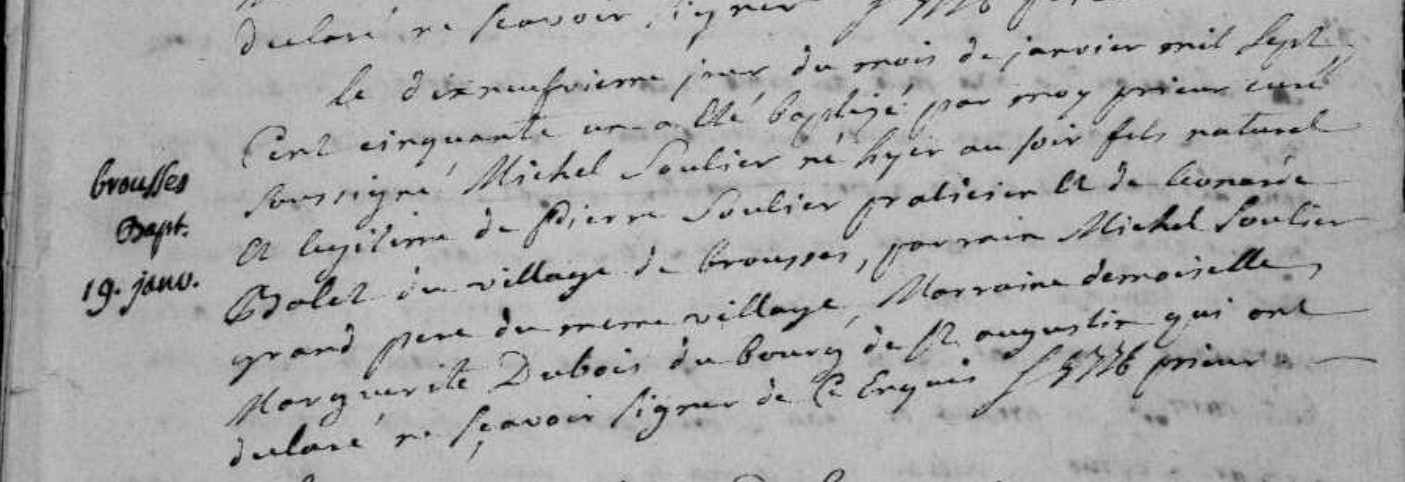 declaré ne sçavoir signer
le dixneufvieme jour du mois de janvier mil sept
Cent cinquante un a eté baptisé par moy prieur curé
brousses
soussigné Michel Soulier né hyer au soir fils naturel
Bapt.
et legitime de Pierre Soulier praticien et de Leonarde
19. janv.
Bolet du village de brousses, parrain Michel Soulier
grand pere du meme village, Marraine demoiselle
Marguerite Dubois du bourg de St augustin qui ont
declaré ne sçavoir signer de Ce Enquis prieur